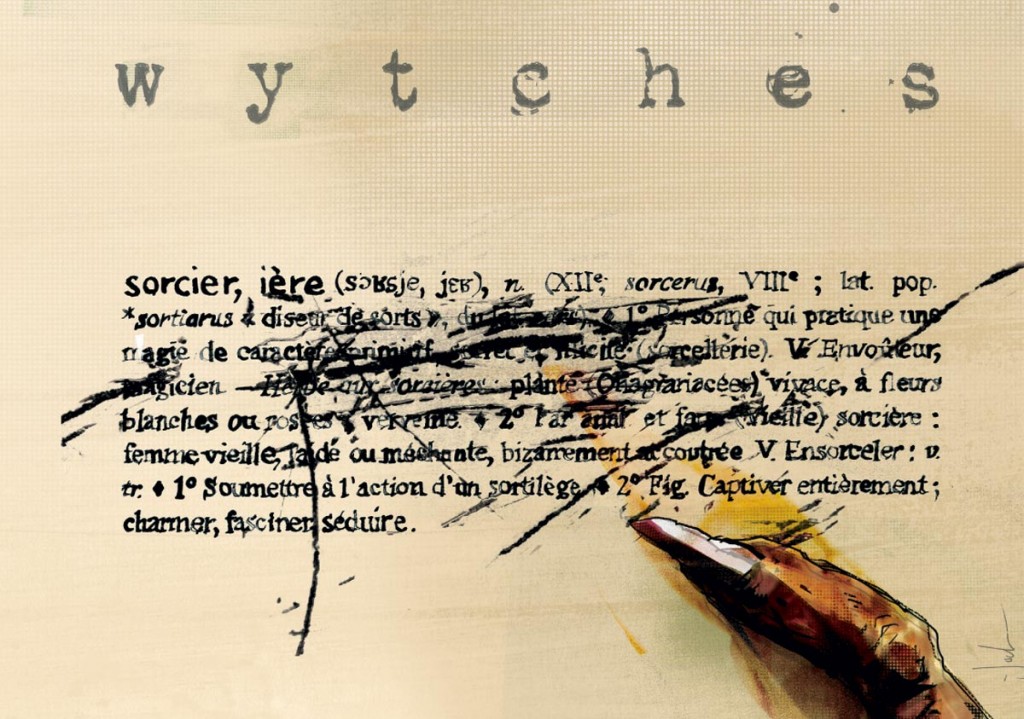 wytches
sorcier, ière (sɔʀsje, jɛʀ), n. (XIIe; sorcerus, VIIIe ; lat. pop.
*sortiarus « diseur de sorts », du 1° Personne qui pratique une
magie de caractère primitif, secret et illicite (sorcellerie). V. Envoûteur,
magicien Herbe aux sorcières : plante (Onagrariacées) vivace, à fleurs
blanches ou rosées verveine. ♦ 2° Par anal et (Vieille) sorcière :
femme vieille, laide ou méchante, bizarrement accoutrée V. Ensorceler : v.
tr. ♦ 1° Soumettre à l'action d'un sortilège ♦ 2° Fig. Captiver entièrement ;
charmer, fasciner, séduire.